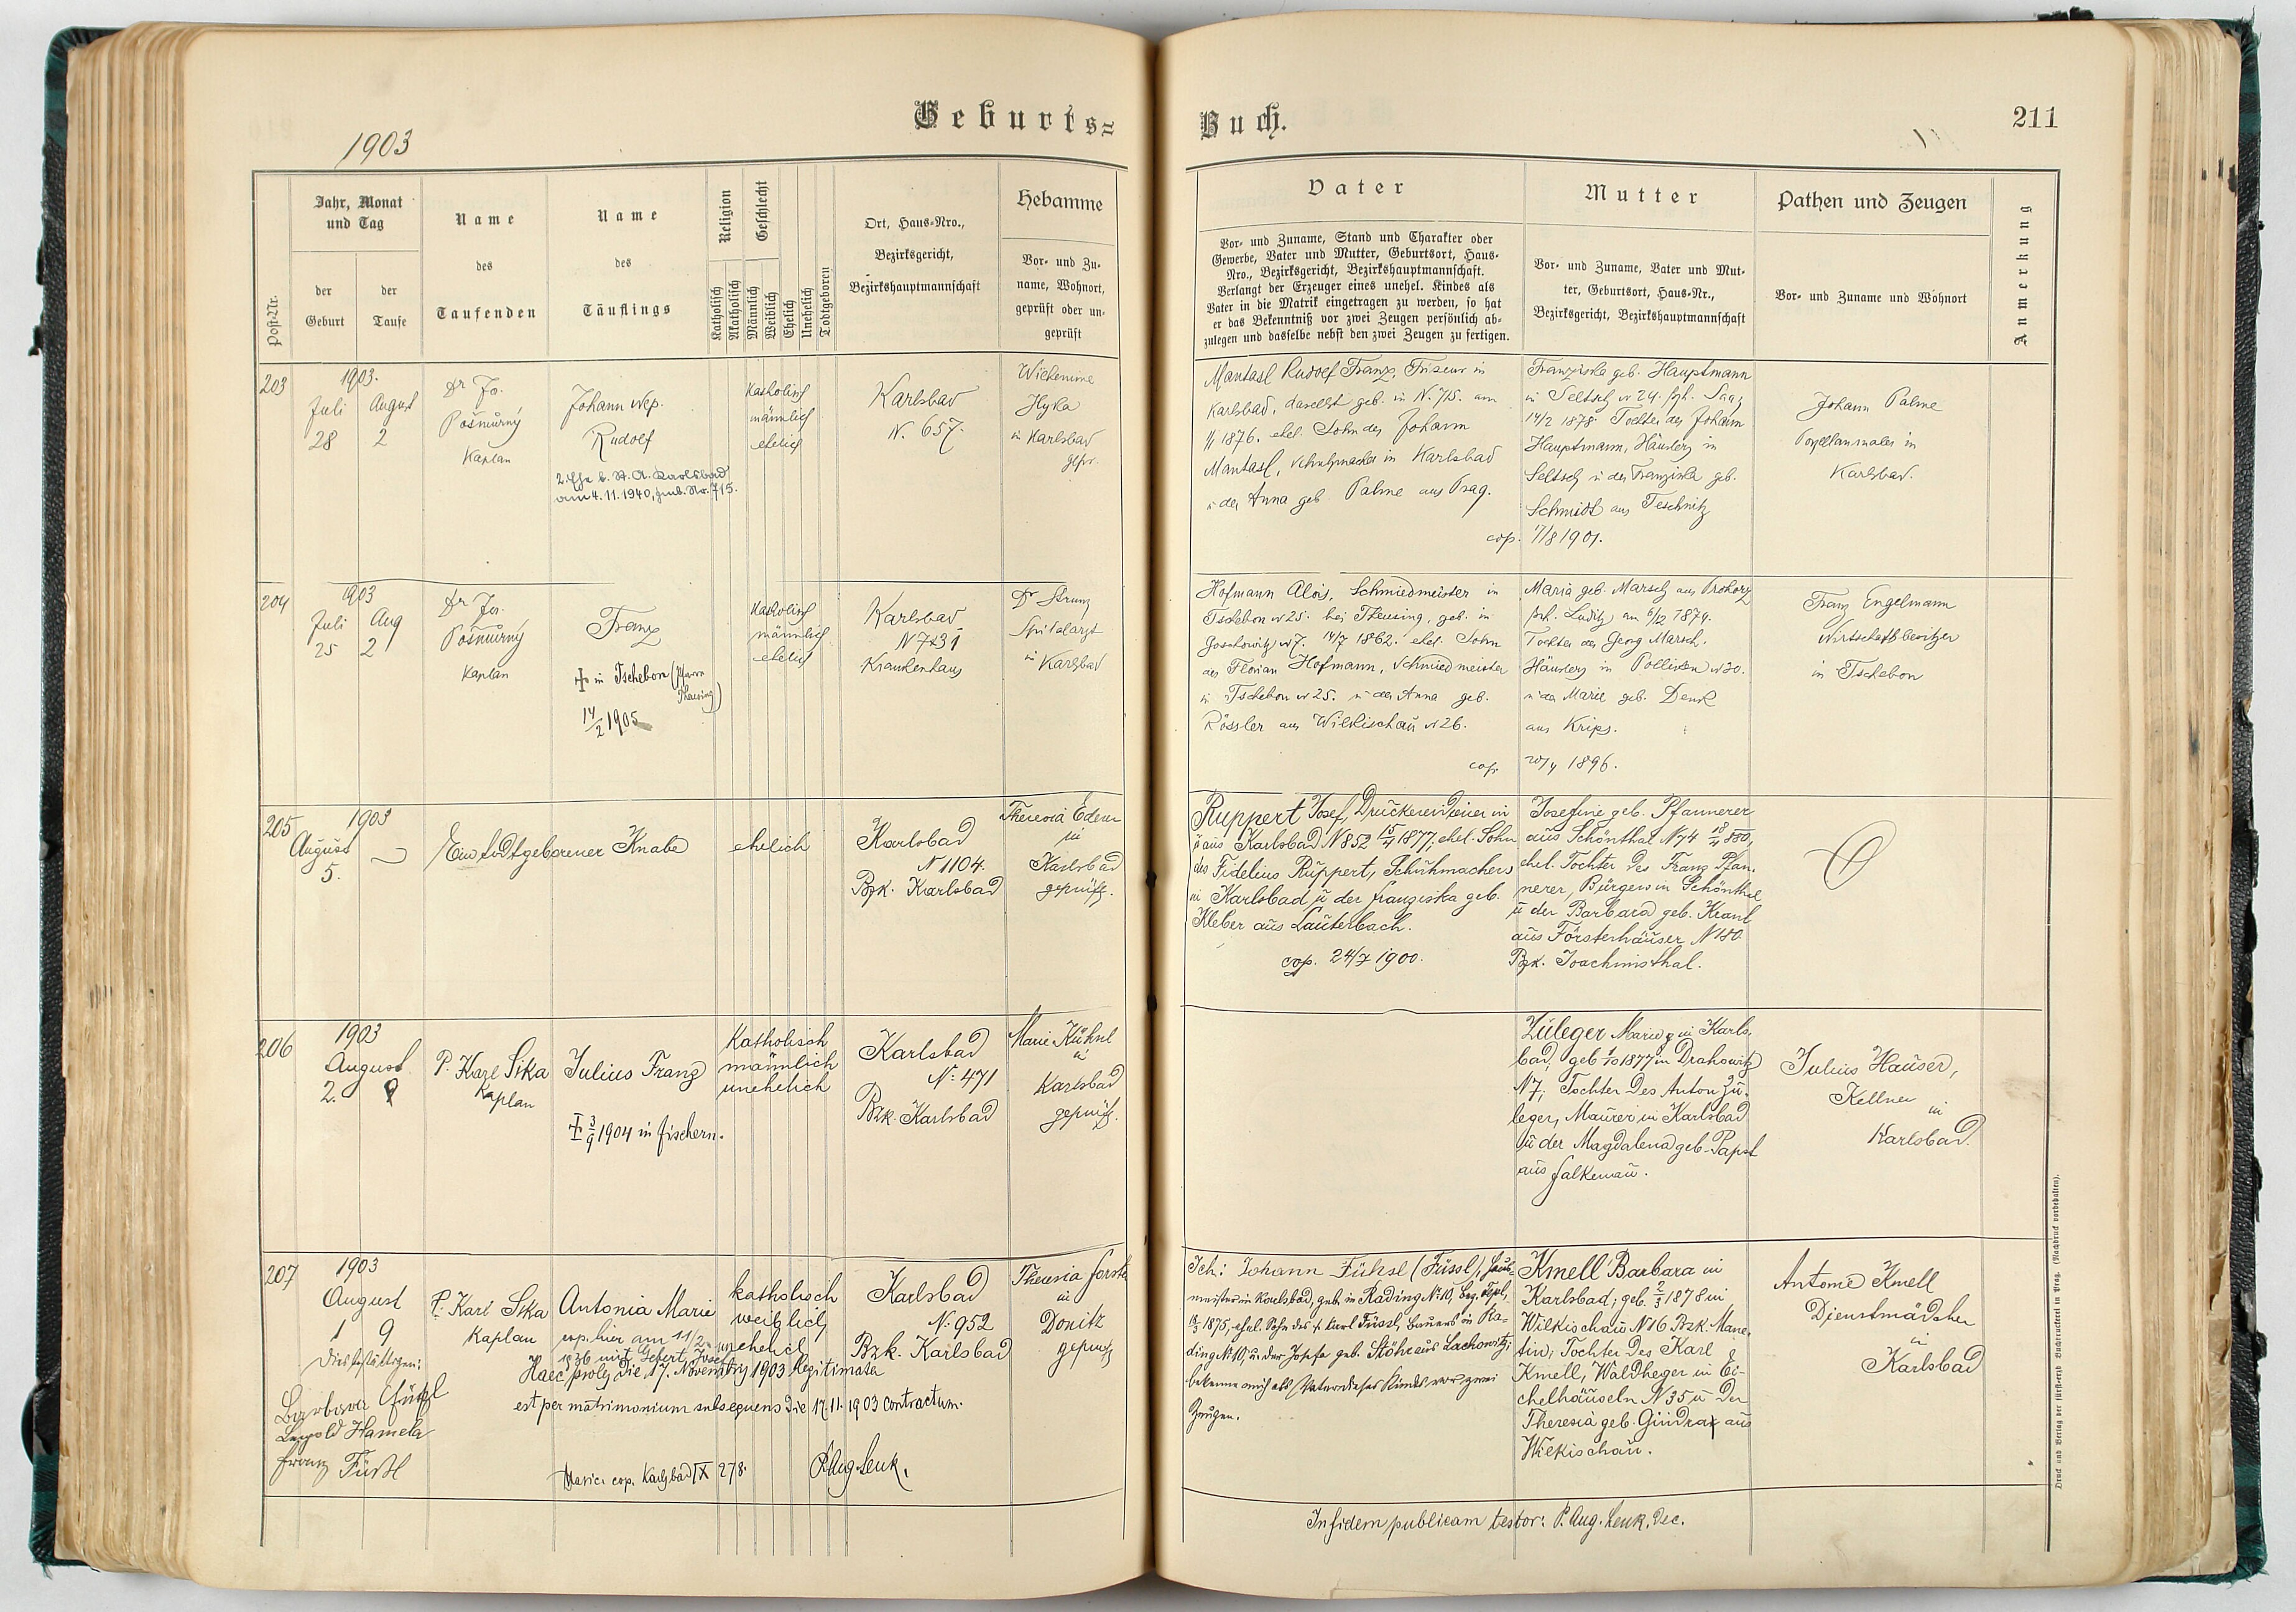 1903
Geburts=
Buch.
211
Post-Nr.
Jahr, Monat
und Tag
der
Geburt
der
Taufe
Name
des
Taufenden
Name
des
Täuflings
Religion
Katholisch
Akatholisch
Geschlecht
Männlich
Weiblich
Ehelich
Unehelich
Todtgeboren
Ort, Haus-Nro.,
Bezirksgericht,
Bezirkshauptmannschaft
Hebamme
Vor- und Zu-
name, Wohnort,
geprüft oder un-
geprüft
Vater
Vor- und Zuname, Stand und Charakter oder
Gewerbe, Vater und Mutter, Geburtsort, Haus-
Nro., Bezirksgericht, Bezirkshauptmannschaft.
Verlangt der Erzeuger eines unehel. Kindes als
Vater in die Matrik eingetragen zu werden, so hat
er das Bekenntniß vor zwei Zeugen persönlich ab-
zulegen und dasselbe nebst den zwei Zeugen zu fertigen.
Mutter
Vor- und Zuname, Vater und Mut-
ter, Geburtsort, Haus-Nr.,
Bezirksgericht, Bezirkshauptmannschaft
Pathen und Zeugen
Vor- und Zuname und Wohnort
Anmerkung
203
1903.
Juli
28
August
2
Dr Jo.
Pošmůrný
Kaplan
Johann Nep.
Rudolf
2. Ehe b. St. A. Karlsbad
am 4.11.1940, Nr. 715.
katholisch
männlich
ehelich
Karlsbad
N. 657.
Hyka
in Karlsbad
gepr.
Mantasl Rudolf Franz, Friseur in
Karlsbad, daselbst geb. in N. 715. am
1876. ehel. Sohn des Johann
Mantasl, Schuhmacher in Karlsbad
u der Anna geb. Palme aus Prag.
Franziska geb. Hauptmann
in Seltsch N 24. Saaz
14/2 1878. Tochter des Johann
Hauptmann, Häusler in
Seltsch u der Franziska geb.
Schmidt aus Teschnitz
cop. 17/8 1901.
Johann Palme
Porzellanmaler in
Karlsbad.
204
1903
Juli
25
Aug
2
Dr Jo.
Pošmůrný
Kaplan
Franz
+ in Tschebon (Pfarre
Theusing)
14/2 1905
katholisch
männlich
ehelich
Karlsbad
N 731
Krankenhaus
Dr Strunz
Spitalarzt
in Karlsbad
Hofmann Alois, Schmiedmeister in
Tschebon N 25. bei Theusing, geb. in
Goschowitz N 7. 14/7 1862. ehel. Sohn
des Florian Hofmann, Schmiedmeister
in Tschebon N 25. u der Anna geb.
Rössler aus Wilkischau N 26.
Maria geb. Marsch aus
Luditz am 6/12 1874.
Tochter des Georg Marsch,
Häusler in Polliken N 20.
u der Marie geb. Denk
aus Krips.
cop. 1896.
Franz Engelmann
Wirtschaftsbesitzer
in Tschebon
205
1903
August
5.
Ein todtgeborener Knabe
ehelich
Karlsbad
N 1104.
Bzk. Karlsbad
Theresia Ederer
in
Karlsbad
geprüft.
Ruppert Josef, Druckereidiener in
u aus Karlsbad N 852 15/4 1877; ehel. Sohn
des Fidelius Ruppert, Schuhmachers
in Karlsbad u der Franziska geb.
Kleber aus Lauterbach.
cop. 24/7 1900.
Josefine geb. Pfannerer
aus Schönthal N 74 18/4 880,
ehel. Tochter des Franz Pfan-
nerer, Bürgers in Schönthal
u der Barbara geb. Kraul
aus Försterhäuser N 180
Bzk. Joachimsthal.
206
1903
August
2. 9
P. Karl Sika
Kaplan
Julius Franz
+ 3/9 1904 in Fischern.
katholisch
männlich
unehelich
Karlsbad
N. 471
Bzk. Karlsbad
Marie Kühnl
in
Karlsbad
geprüft.
Züleger Marie in Karls-
bad, geb. 1877 in Drahowitz
N 7; Tochter des Anton Zü-
leger, Maurer in Karlsbad
u der Magdalena geb. Papst
aus Falkenau.
Julius Hauser,
Kellner
in
Karlsbad.
207
1903
August
1 9
P. Karl Sika
Kaplan
Dies bestättigen:
Barbara Füßl
Leopold Hamela
Franz Füßl
Antonia Marie
cop. hier am 11/2
1936 mit Gebert Josef
katholisch
weiblich
unehelich
Karlsbad
N. 952
Bzk. Karlsbad
Theresia Forster
in
Donitz
geprüft
Haec proles die 17. Novembris 1903 legitimata
est per matrimonium subsequens die 17.11.1903 contractum.
Matric. cop. Karlsbad IX 278.
P. Aug. Lenk.
Ich: Johann Fühsl (Füssl), Haus-
meister in Karlsbad, geb. in Rading N. 10, Bez. Tepl,
1875, ehel. Sohn des + Karl Füssl, Bauers in Ra-
ding N. 10, u. der Josefa geb. Stöhr aus Lachowitz;
bekenne mich als Vater dieses Kindes vor zwei
Zeugen.
Kmell Barbara in
Karlsbad; geb. 2/3 1878 in
Wilkischau N 16 Bzk. Mane-
tin; Tochter des Karl
Kmell, Waldheger in Ei-
chelhäuseln N 35 u der
Theresia geb. Gindra aus
Wilkischau.
Antonie Kmell
Dienstmädchen
in
Karlsbad
In fidem publicam testor: P. Aug. Lenk, Dec.
Druck und Verlag der fürst-erzb. Buchdruckerei in Prag. (Nachdruck vorbehalten).